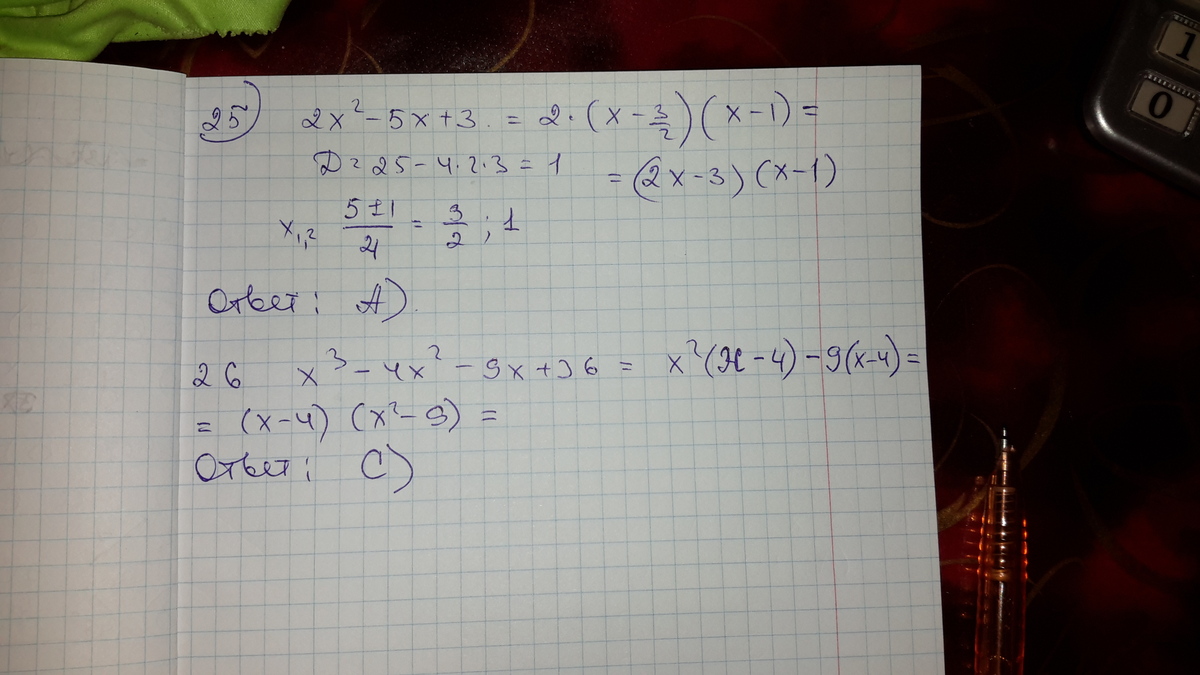 25) 2x² - 5x + 3. = 2·(x - 3/2)(x - 1) =
D = 25 - 4·2·3 = 1 = (2x - 3)(x - 1)
x₁,₂ (5 ± 1)/4 = 3/2 ; 1
Ответ: A).
26 x³ - 4x² - 9x + 36 = x²(x - 4) - 9(x - 4) =
= (x - 4) (x² - 9) =
Ответ: C)
1
0